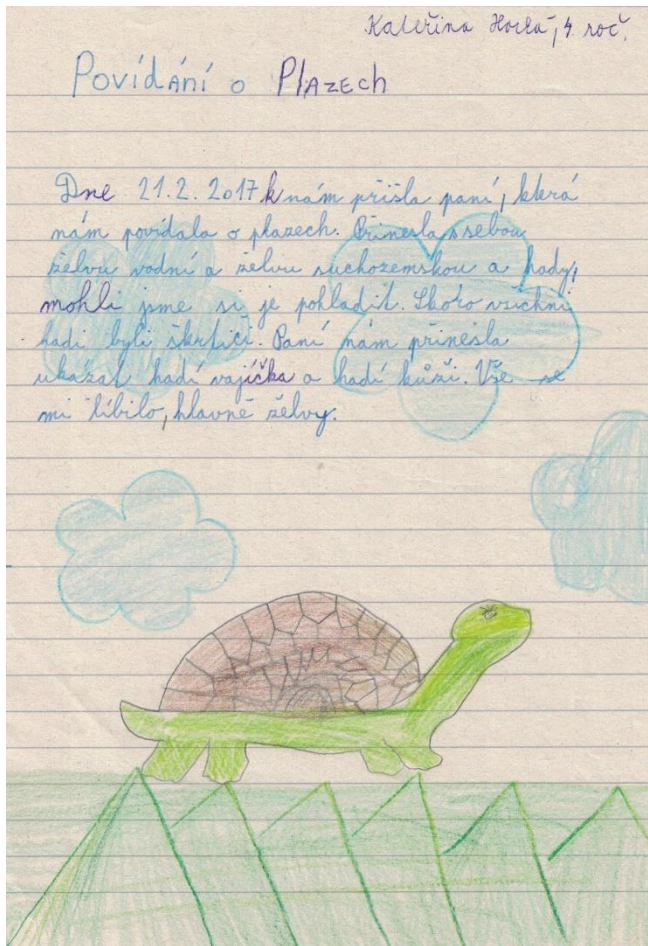 Kateřina Horká, 4. roč.
Povídání o Plazech
Dne 21.2. 2017 k nám přišla paní, která
nám povídala o plazech. Přinesla s sebou
želvu vodní a želvu suchozemskou a hady,
mohli jsme si je pohladit. Skoro všichni
hadi byli škrtiči. Paní nám přinesla
ukázat hadí vajíčka a hadí kůži. Vše se
mi líbilo, hlavně želvy.